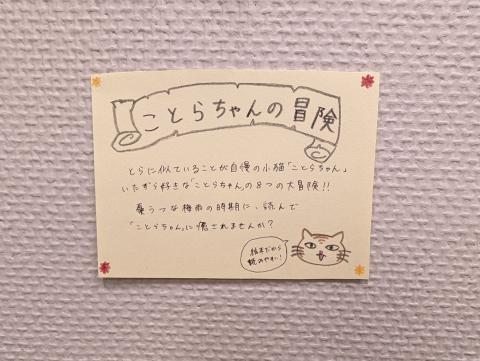 ことらちゃんの冒険
とらに似ていることが自慢の小猫「ことらちゃん」
いたずら好きな「ことらちゃん」の8つの大冒険!!
憂うつな梅雨の時期に、読んで
"ことらちゃん"に癒されませんか?
絵本だから
読みやすい!